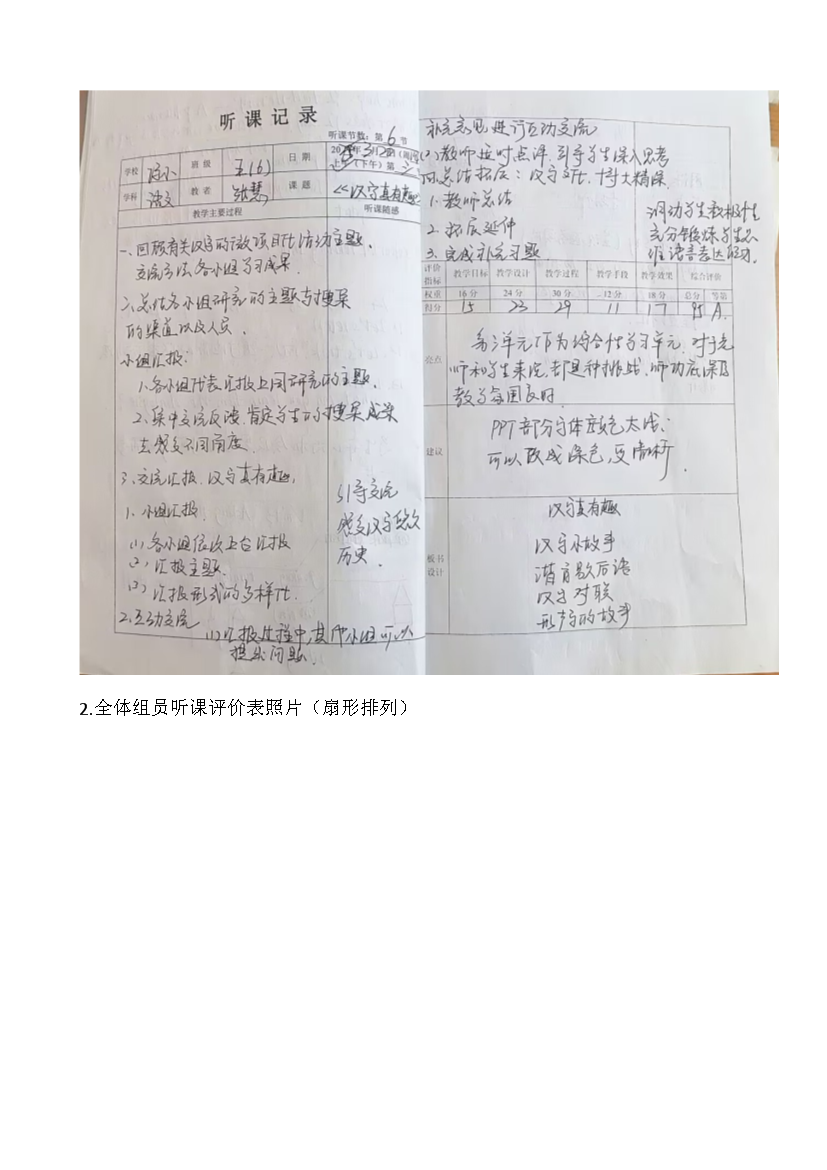 听课记录
听课节数:第 6 节
学校 班级 五(6) 日期
学科 语文 教者 张慧 课题 《汉字真有趣》
教学主要过程 听课随感
一、回顾有关汉字的微项目化活动主题,
交流方法,各小组学习成果
二、总结各小组研究的主题与搜集
的渠道以及人员.
小组汇报:
1.各小组代表汇报上周研究的主题.
2.集中交流反馈.肯定学生的搜集成果
去感受不同角度.
3.交流汇报.汉字真有趣.
1.小组汇报.
(1)各小组依次上台汇报
(2)汇报主题.
(3)汇报形式的多样化.
引导交流
感受汉字悠久
历史.
2.互动交流
(1)汇报过程中,其他小组可以
提出问题.
补充意见进行互动交流
(2)教师适时点评,引导学生深入思考
四.总结拓展:汉字文化,博大精深.
1.教师总结
2.拓展延伸
3.完成补充习题.
调动学生积极性
充分锻炼学生思
维语言表达能力.
评价指标 教学目标 教学设计 教学过程 教学手段 教学效果 综合评价
权重 16分 24分 30分 12分 18分 总分 等第
得分 15 23 29 11 17 95 A.
亮点
第三单元作为综合性学习单元.对于老
师和学生来说,都是种挑战,师功底深厚
教学氛围良好.
建议
PPT部分字体颜色太浅,
可以改成深色,更清晰.
板书设计
汉字真有趣
汉字小故事
谐音歇后语
汉字对联
形声的故事
2.全体组员听课评价表照片(扇形排列)